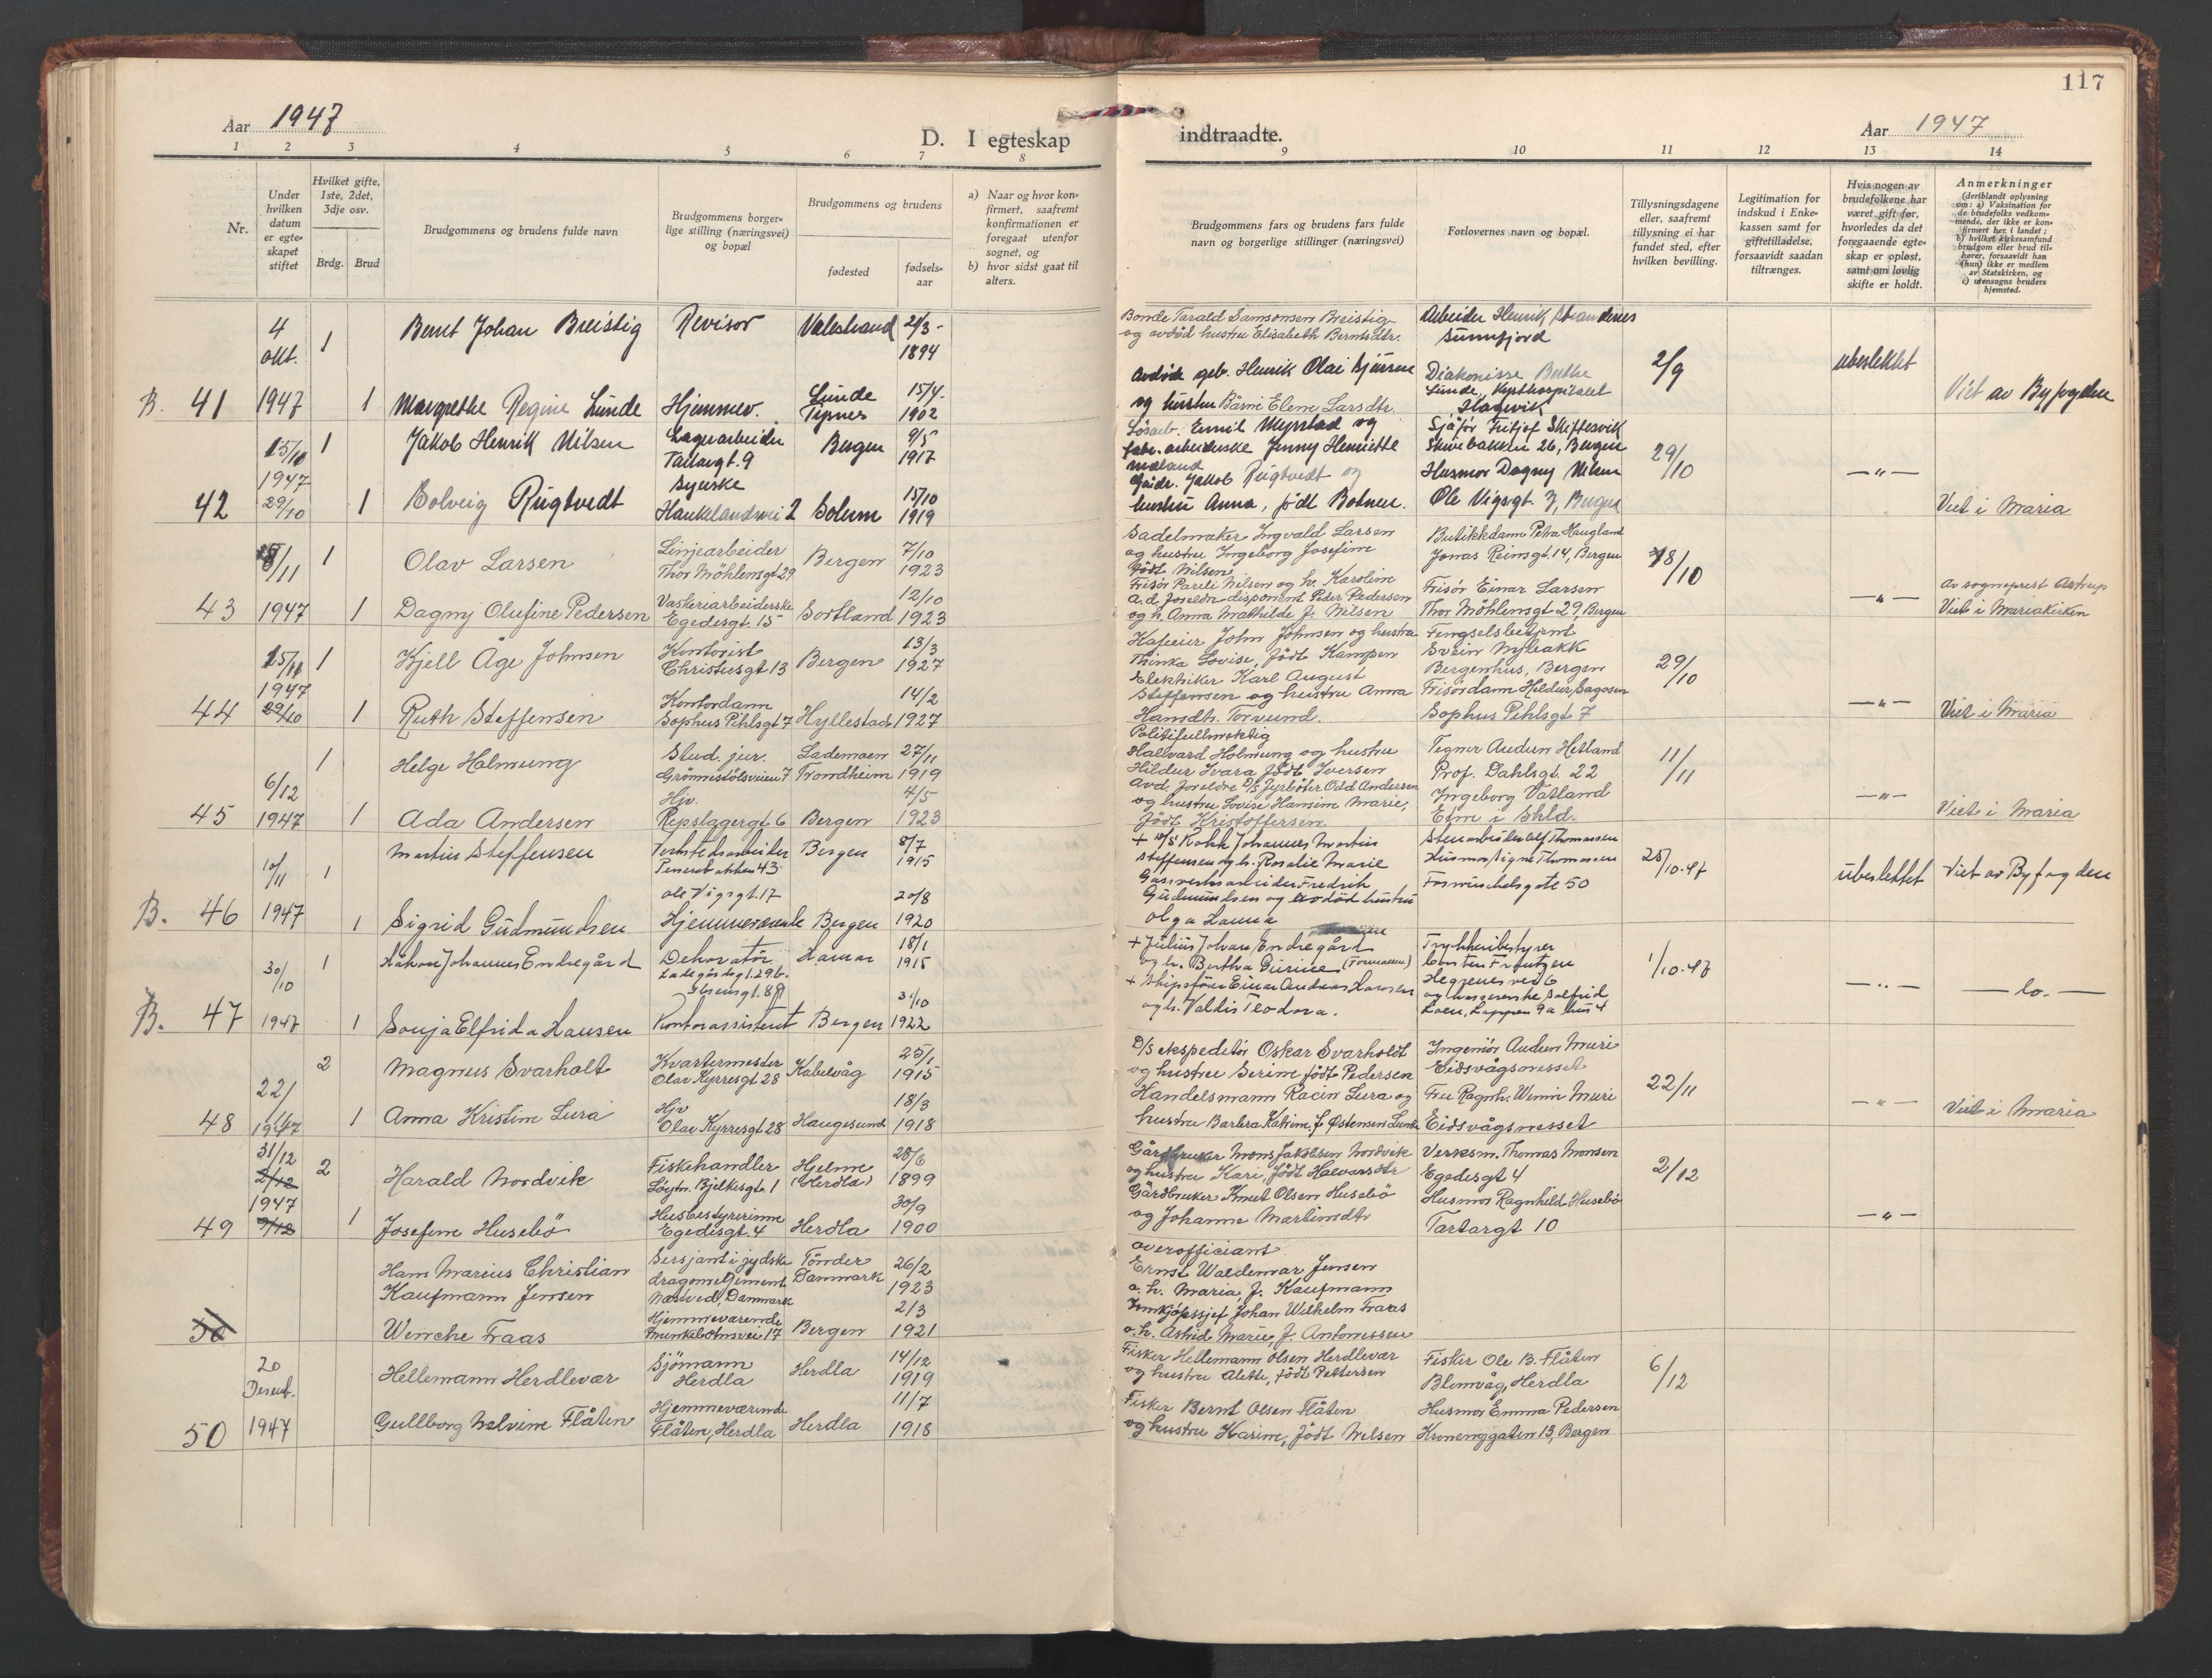 117
Aar 1947
D. I egteskap indtraadte.
Aar 1947
1 2 3 4 5 6 7 8 9 10 11 12 13 14
Nr.
Under hvilken datum er egteskapet stiftet
Hvilket gifte, 1ste, 2det, 3dje osv.
Brdg. Brud
Brudgommens og brudens fulde navn
Brudgommens borgerlige stilling (næringsvei) og bopæl
Brudgommens og brudens
fødested
fødselsaar
a) Naar og hvor konfirmert, saafremt konfirmationen er foregaat utenfor sognet, og
b) hvor sidst gaat til alters.
Brudgommens fars og brudens fars fulde navn og borgerlige stillinger (næringsvei)
Forlovernes navn og bopæl.
Tillysningsdagene eller, saafremt tillysning ei har fundet sted, efter hvilken bevilling.
Legitimation for indskud i Enkekassen samt for giftetilladelse, forsaavidt saadan tiltrænges.
Hvis nogen av brudefolkene har været gift før, hvorledes da det foregaaende egteskap er opløst, samt om lovlig skifte er holdt.
Anmerkninger
(deriblandt oplysning om: a) Vaksination for de brudefolks vedkommende, der ikke er konfirmert her i landet; b) hvilket kirkesamfund brudgom eller brud tilhører, forsaavidt han (hun) ikke er medlem av Statskirken, og c) utensogns bruders hjemsted.
B. 41
4 okt. 1947
1 Bernt Johan Breistig
Revisor
Valestrand 21/3- 1894
Bonde Tarald Samsonsen Breistig
og avdød hustru Elisabeth Berntsdtr.
Arbeider Henrik Strandenes
Sunnfjord
1 Margrethe Regine Lunde
Hjemmev.
Lunde Tysnes 15/4. 1902
Avdøde grb. Henrik Olai
og hustru Elene Larsdtr.
Diakonisse Berthe
Lunde, Kysthospitalet
Hagevik
2/9
ubeslektet
Viet av Byfogden
42
15/10 1947 29/10
1 Jakob Henrik Nilsen
Lagerarbeider
Tartargt. 9
Bergen 9/5 1917
Løsarb. Emil Myrstad og
fabr. arbeiderske Jenny Henriette
Mæland
Sjåfør Fritjof Skiftesvik
Skivebakken 26, Bergen
1 Solveig Rugtvedt
Syerske
Hauklandsvei 2
Solum 15/10 1919
Gårdbr. Jakob Rugtvedt og
hustru Anna, født Botnen.
Husmor Dagny Nilsen
Ole Vigsgt. 7, Bergen
29/10
— " —
Viet i Maria
43
8/11 1947
1 Olav Larsen
Linjearbeider
Thor Möhlensgt 29
Bergen 7/10 1923
Sadelmaker Ingvald Larsen
og hustru Ingeborg Josefine
født Nilsen
Butikkdame Petra Haugland
Jonas Reinsgt. 14, Bergen
1 Dagny Olufine Pedersen
Vaskeriarbeiderske
Egedesgt. 15
Sortland 12/10 1923
Frisør Pareli Nilsen og h. Karoline
a.d. foreldre disponent Peder Pedersen
og h. Anna Mathilde f. Nilsen
Frisør Einar Larsen
Thor Möhlensgt 29, Bergen
18/10
— " —
Av sogneprest Astrup
Viet i Mariakirken
44
15/11 1947 29/10
1 Kjell Åge Johnsen
Kontorist
Christiesgt 13
Bergen 13/3 1927
Kafeeier John Johnsen og hustru
Thinka Lovise, født Kampen
Fengselsbetjent
Svein Myleakk
Bergenhus, Bergen
1 Ruth Steffensen
Kontordame
Sophus Pihlsgt 7
Hyllestad 14/2 1927
Elektriker Karl August
Steffensen og hustru Anna
Handh. Torvund.
Frisørdame Heldur Sagosen
Sophus Pihlsgt 7
29/10
— " —
Viet i Maria
45
6/12 1947
1 Helge Holmung
Stud. jur.
Grönnestölsveien 7
Lademoen Trondheim 27/11 1919
Politifullmektig
Hallvard Holmung og hustru
Hildur Ivara født Iversen
Tegner Audun Hetland
Prof. Dahlsgt. 22
1 Ada Andersen
Hjv.
Repslagergt 6
Bergen 4/5 1923
Avd. foreldre D/S fyrbøter Odd Andersen
og hustru Lovise Hansine Marie,
født Kristoffersen.
Ingeborg Vatland
Etne i Shld.
11/11
— " —
Viet i Maria
B. 46
10/11 1947
1 Martin Steffensen
Verkstedsarbeider
43
Bergen 8/7 1915
+ D/S Kokk Johannes Martin
Steffensen og h. Rosalie Marie
Stenarbeider Alf Thomassen
Husmor Signe Thomassen
Formanns gate 50
1 Sigrid Gudmundsen
Ole Vigsgt. 17
Hjemmeværende
Bergen 20/8 1920
Gassverksarbeider Fredrik
Gudmundsen og avdød hustru
Olga Hanna
25/10-47
ubeslektet
Viet av Byfogden
B. 47
30/10 1947
1 Håkon Johannes Endregård
Dekoratør
Ladegårdsgt. 29b.
Hamar 18/1 1915
+ Julius Johan Endregård
og h. Bertha Gurine (Formann)
Trykkeribestyrer
Carsten Frantzen
Heggenes vei 6
1 Sonja Elfrida Hansen
Ibsensgt. 89
Kontorassistent
Bergen 31/10 1922
+ Skipsfører Einar Andreas Hansen
og h. Valdis Teodora.
og Solfrid
Loen, Lappen 9a hus 4
1/10-47
— " —
— do. —
48
22/ 1947
2 Magnus Svarholt
Kvartermester
Olav Kyrresgt 28
Kabelvåg 25/1 1915
D/S ekspeditør Oskar Svarholdt
og hustru Serine født Pedersen
Ingeniør Audun Muri
Eidsvågsnesset
1 Anna Kristine Lura
Hjv
Olav Kyrresgt 28
Haugesund 18/3 1918
Handelsmann Racin Lura og
hustru Barbra Katrine f. Østensen Lunde
Fru Ragnh. Wenni Muri
Eidsvågsnesset
22/11
— " —
Viet i Maria
49
31/12 2/12 1947 9/12
2 Harald Nordvik
Fiskehandler
Løytn. Bjelkesgt. 1
Hjelme (Herdla) 28/6 1899
Gårdbruker Mons Jakobsen Nordvik
og hustru Kari, født Halvarsdtr
Verksm. Thomas Monsen
Egedesgt 4
1 Josefine Husebö
Husbestyrerinne
Egedesgt. 4
Herdla 30/9 1900
Gårdbruker Knut Olsen Husebö
og Johanne Martinsdtr
Husmor Ragnhild Husebö
Tartargt 10
2/12
— " —
50
Hans Marius Christian
Kaufmann Jensen
Sersjant i jydske
dragonregiment
Næstved, Danmark
Tönder Danmark 26/2 1923
Overofficiant
Ernst Waldemar Jensen
o. h. Maria, f. Kaufmann
Wenche Fraas
Hjemmeværende
Munkebotnsvei 17
Bergen 2/3 1921
Innkjøpssjef Johan Wilhelm Fraas
o. h. Astrid Marie, f. Antonessen
50
20 Desemb. 1947
Hellemann Herdlevær
Sjömann
Herdla
Herdla 14/12 1919
Fisker Hellemann Olsen Herdlevær
og hustru Alette, født Pettersen
Fisker Ole B. Flåten
Blomvåg, Herdla
Gullborg Malvine Flåten
Hjemmeværende
Flåten, Herdla
Herdla 11/7 1918
Fisker Bernt Olsen Flåten
og hustru Karine, født Nelsen
Husmor Emma Pedersen
Kronenggaten 13, Bergen
6/12